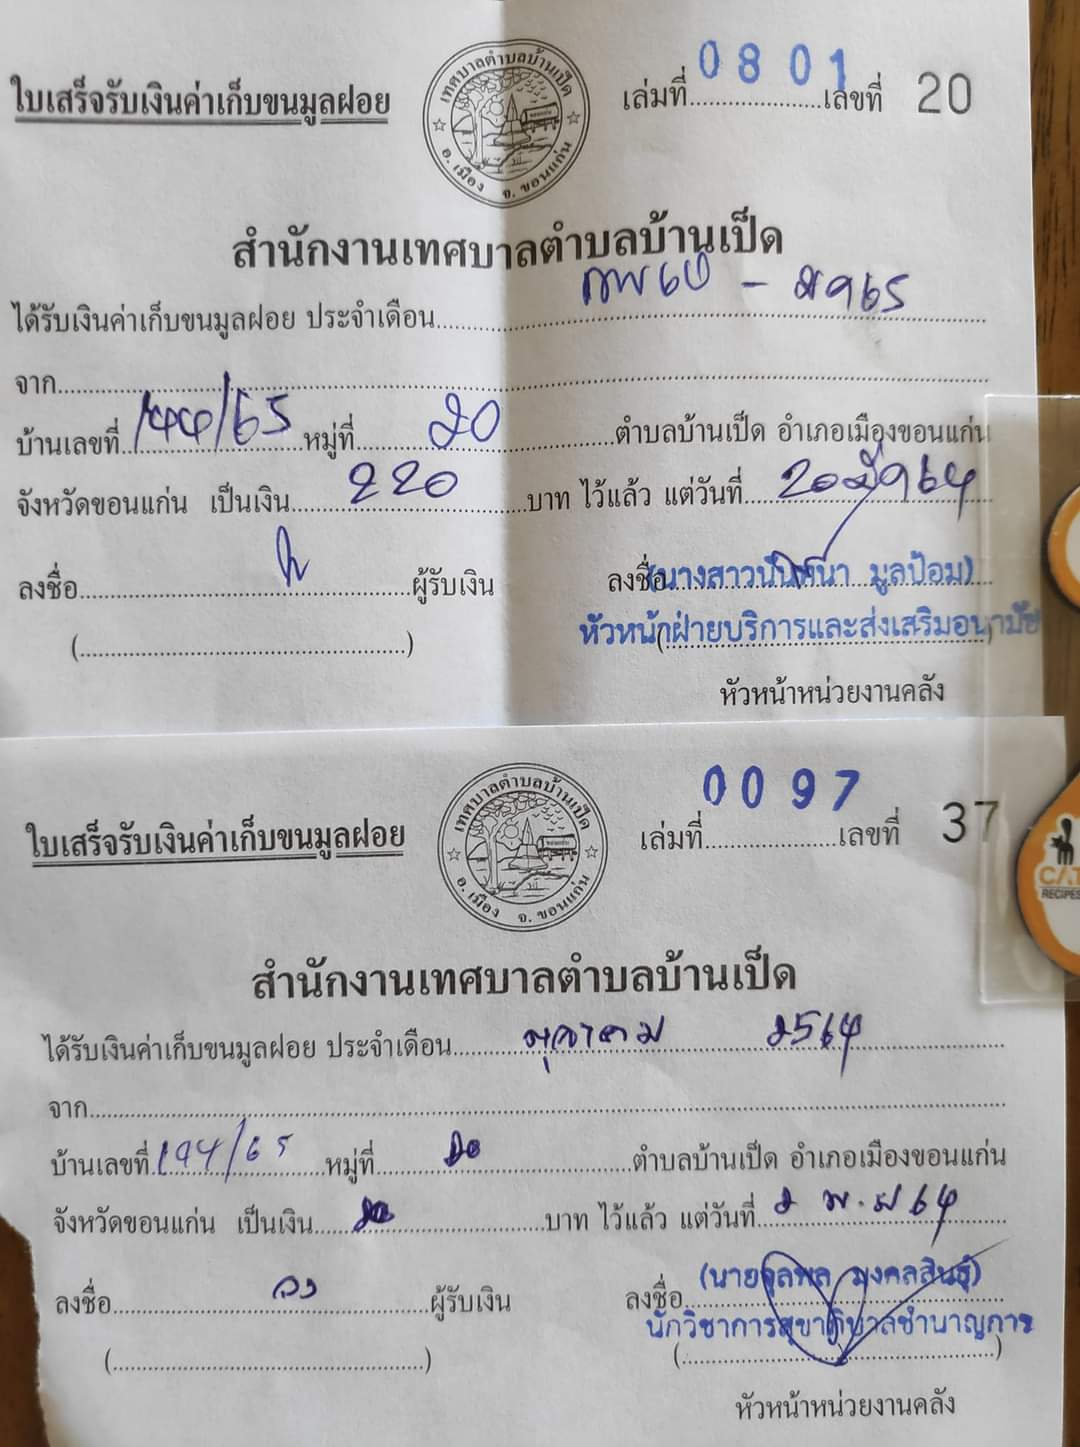 ใบเสร็จรับเงินค่าเก็บขนมูลฝอย
เทศบาลตำบลบ้านเป็ด
อ.เมือง จ.ขอนแก่น
เล่มที่ 0801 เลขที่ 20
สำนักงานเทศบาลตำบลบ้านเป็ด
ได้รับเงินค่าเก็บขนมูลฝอย ประจำเดือน
จาก
บ้านเลขที่ 144/65 หมู่ที่ 20 ตำบลบ้านเป็ด อำเภอเมืองขอนแก่น
จังหวัดขอนแก่น เป็นเงิน 220 บาท ไว้แล้ว แต่วันที่
ลงชื่อ ผู้รับเงิน ลงชื่อ (นางสาวนันทนา มูลป้อม)
หัวหน้าฝ่ายบริการและส่งเสริมอนามัย
(....................)
หัวหน้าหน่วยงานคลัง
ใบเสร็จรับเงินค่าเก็บขนมูลฝอย
เทศบาลตำบลบ้านเป็ด
อ.เมือง จ.ขอนแก่น
เล่มที่ 0097 เลขที่ 37
CAT
RECIPES
สำนักงานเทศบาลตำบลบ้านเป็ด
ได้รับเงินค่าเก็บขนมูลฝอย ประจำเดือน ตุลาคม 2564
จาก
บ้านเลขที่ 144/65 หมู่ที่ 20 ตำบลบ้านเป็ด อำเภอเมืองขอนแก่น
จังหวัดขอนแก่น เป็นเงิน บาท ไว้แล้ว แต่วันที่ 2 พ.ย 64
(นายจุลพล มงคลสินธุ์)
ลงชื่อ ผู้รับเงิน ลงชื่อ
นักวิชาการสุขาภิบาลชำนาญการ
(....................) (....................)
หัวหน้าหน่วยงานคลัง